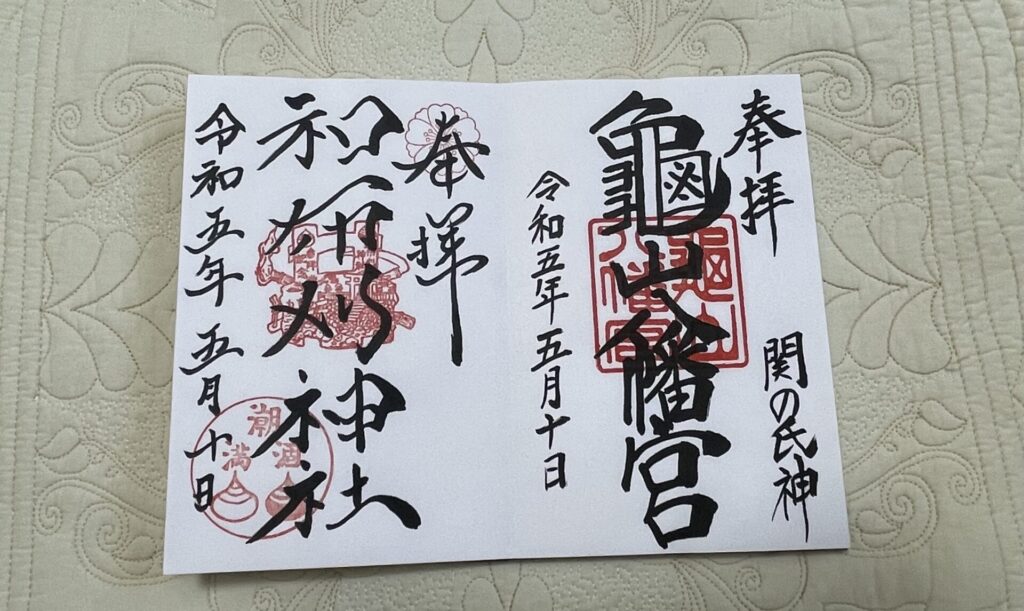 奉拝
関の氏神
龜山八幡宮
龜山八幡宮
令和五年五月十日
奉拝
和布刈神社
令和五年五月十日
潮
満